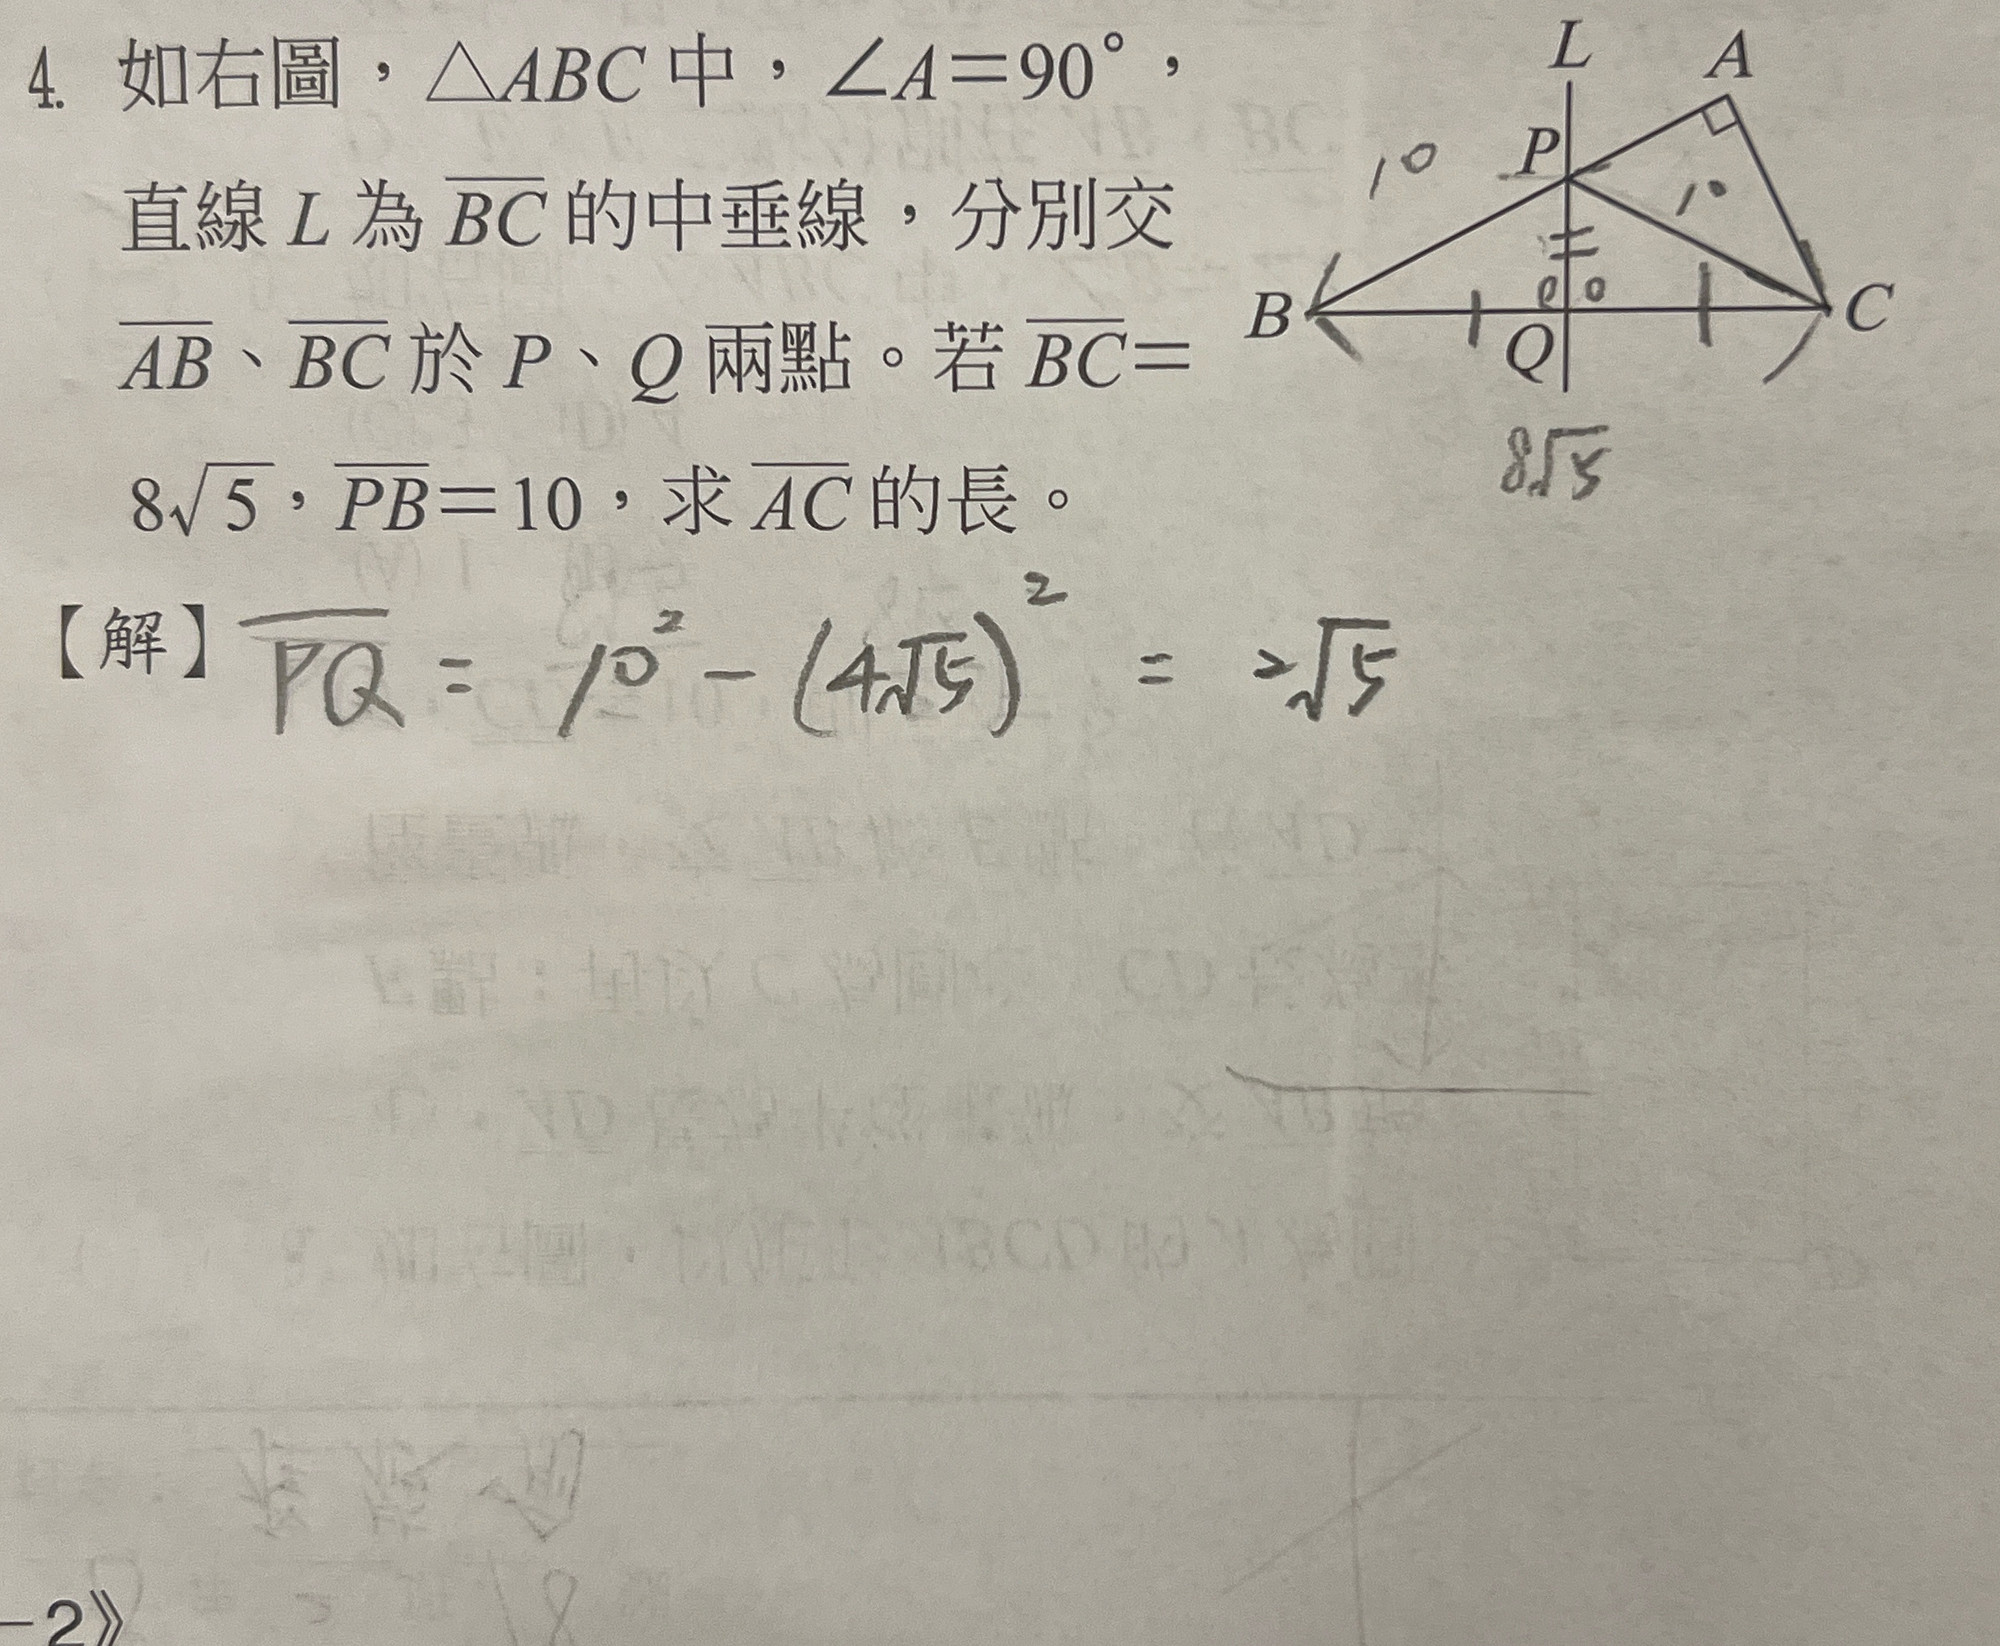 4. 如右圖，△ABC 中，∠A＝90°，
直線 L 為 BC 的中垂線，分別交
AB、BC 於 P、Q 兩點。若 BC＝
8√5，PB＝10，求 AC 的長。
L
A
P
10
10
B
C
Q
8√5
【解】PQ = 10² - (4√5)² = 2√5
-2》